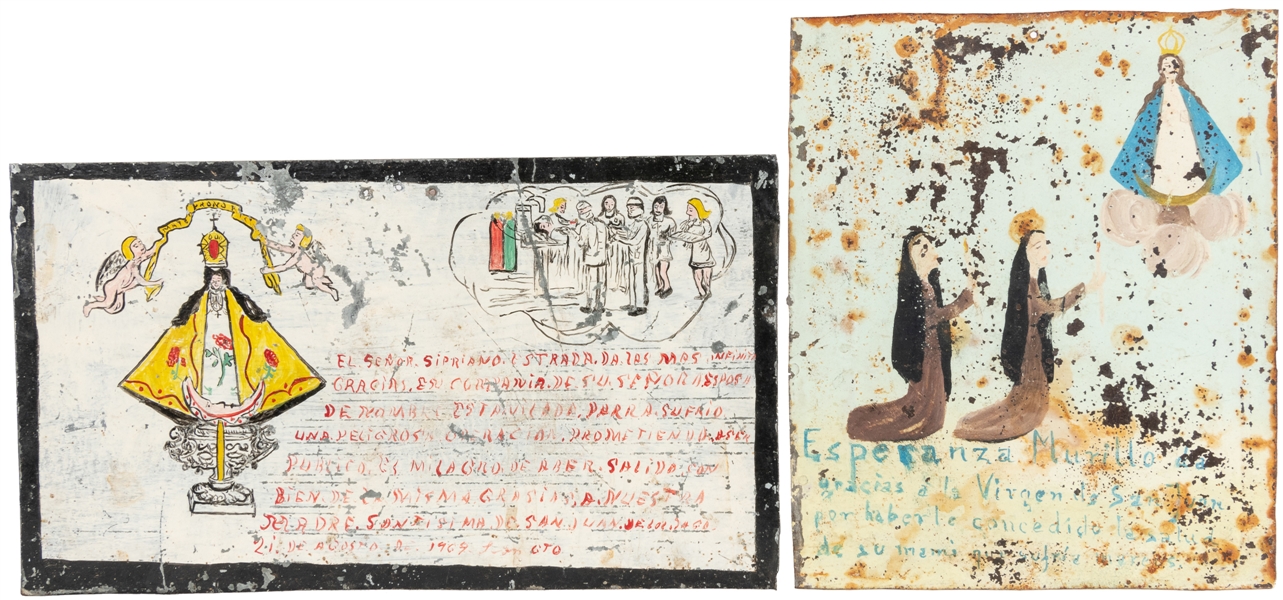 EL SEÑOR. SIPRIANO. ESTRADA. DA. LAS MAS INFINITA
GRACIAS. EN COMPANIA. DE SU SEÑORA ESPOSA
DE NOMBRE. PARRA. SUFRIO
UNA PELIGROSA OPERACION. PROMETIENDO ASER
PUBLICO. ES MILAGRO. DE ABER. SALIDO. CON
BIEN. DE MISMA GRASIAS. A. NUESTRA
MADRE. SANTISIMA. DE SAN. JUAN. DE LOS LAGOS
21. DE AGOSTO. DE 1969 GTO.
Esperanza Murillo da
gracias a la Virgen de San Juan
por haberle concedido la salud
de su mami que sufría